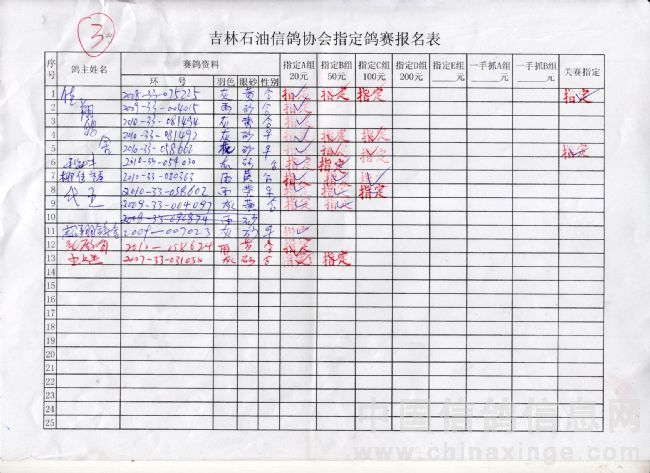 3
吉林石油信鸽协会指定鸽赛报名表
序号 鸽主姓名 赛鸽资料 指定A组 20元 指定B组 50元 指定C组 100元 指定D组 200元 指定E组 元 一手抓A组 元 一手抓B组 元 关赛指定
环号 羽色 眼砂 性别
1 2008-33-075225 灰 黄 指定 指定 指定 指定
2 翔 2009-33-004015 雨 砂 指定
3 鸽 2010-33-081494 灰 黄 指定
4 舍 2010-33-081492 灰 砂 指定 指定 指定
5 2010-33-058663 砂 指定 指定 指定 指定
6 2010-33-054030 灰 砂 指定 指定
7 2010-33-080363 雨 黄 指定 指定 指定
8 2010-33-058602 雨 黄 指定 指定 指定
9 2009-33-004097 灰 黄 指定 指定
10 2009-33-090894 雨 砂
11 2009-007023 灰 砂 指定
12 2010-058624 雨 黄 指定
13 2007-33-031038 灰 砂 指定 指定
14
15
16
17
18
19
20
21
22
23
24
25
中国信鸽信息网
www.chinaxinge.com